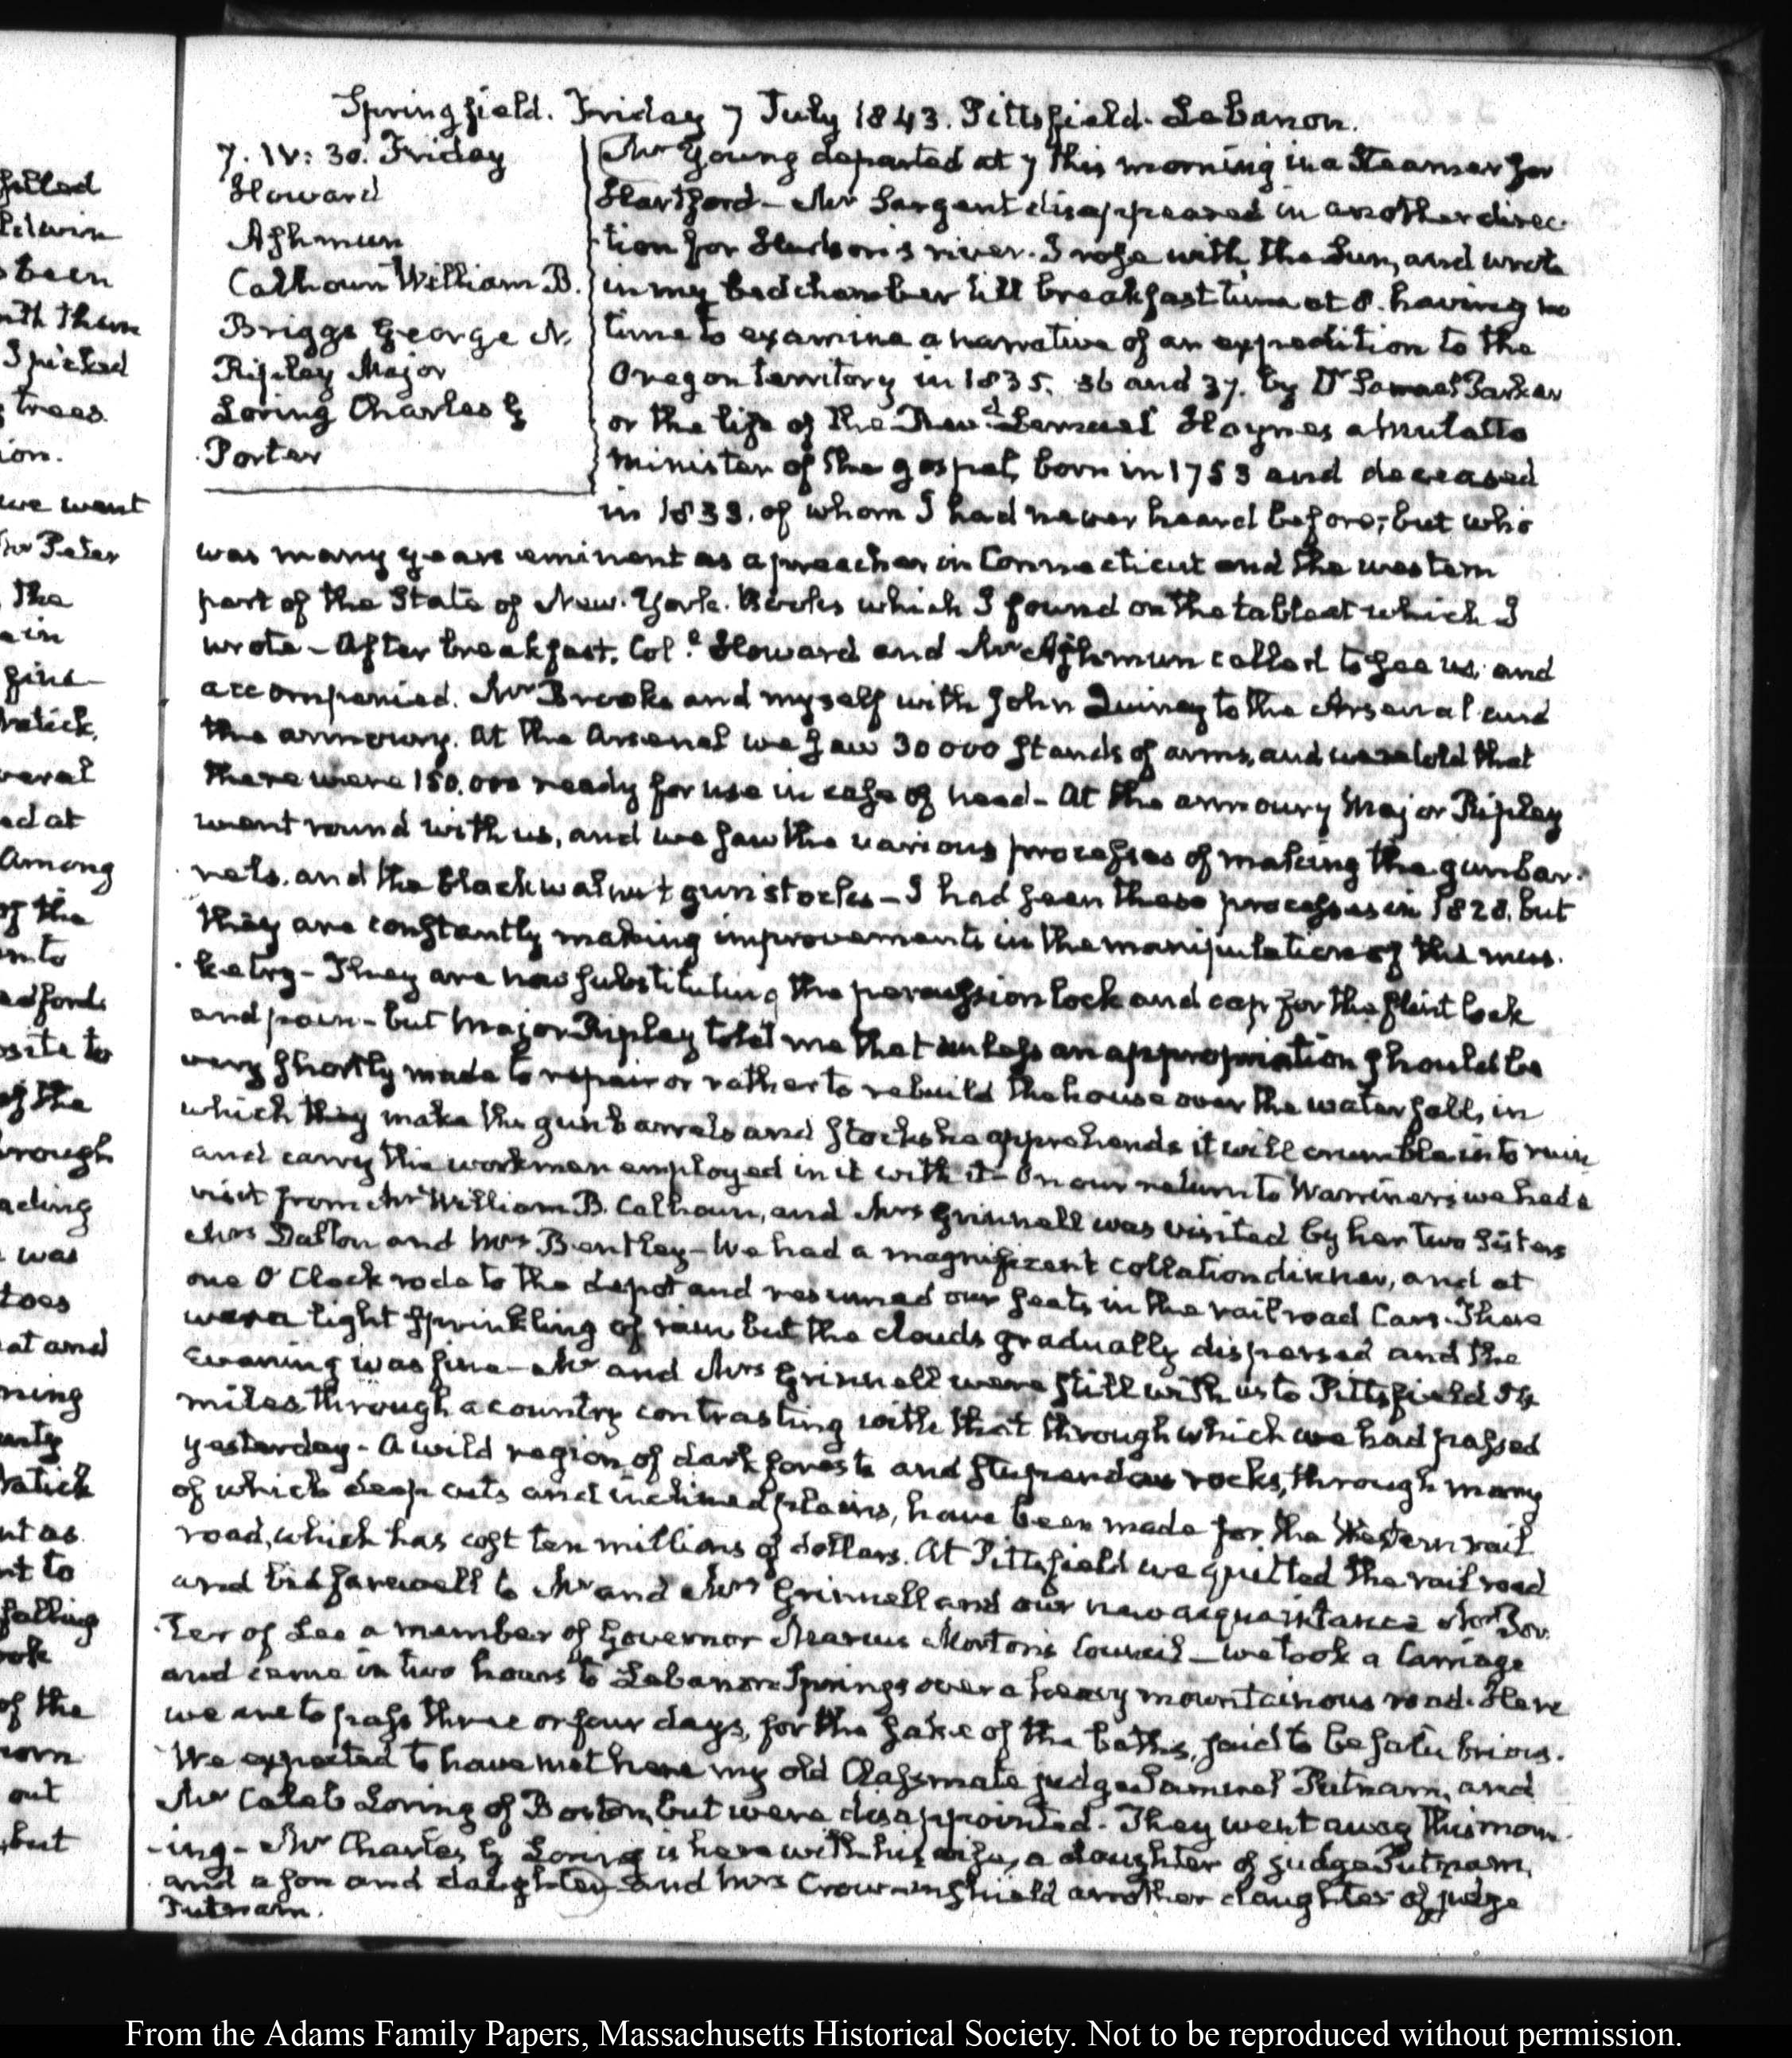 Springfield. Friday 7 July 1843. Pittsfield. Lebanon.
7. IV: 30. Friday
Howard
Ashmun
Calhoun William B.
Briggs George N.
Ripley Major
Loring Charles G
Porter
Mr Young departed at 7 this morning in a Steamer for
Hartford – Mr Sargent disappeared in another direc-
tion for Hudson's river. I rose with the Sun, and wrote
in my bedchamber till breakfast time at 8. having no
time to examine a narrative of an expedition to the
Oregon territory in 1835. 36 and 37. by Dr Samuel Parker
or the life of the Revd. Lemuel Haynes a Mulatto
minister of the gospel, born in 1753 and deceased
in 1833. of whom I had never heard before, but who
was many years eminent as a preacher in Connecticut and the western
part of the State of New-York. Books which I found on the table at which I
wrote – After breakfast, Col. Howard and Mr Ashmun called to see us, and
accompanied. Mr Brooks and myself with John Quincy to the Arsenal and
the armoury. At the Arsenal we saw 30000 stands of arms, and were told that
there were 150.000 ready for use in case of need – At the armoury Major Ripley
went round with us, and we saw the various processes of making the gunbar-
rels, and the black walnut gunstocks – I had seen these processes in 1828. but
they are constantly making improvements in the manipulation of this mus-
ketry – They are now substituting the percussion lock and cap for the flint lock
and pan – but Major Ripley told me that unless an appropriation should be
very shortly made to repair or rather to rebuild the house over the water fall, in
which they make the gunbarrels and stocks he apprehends it will crumble into ruin
and carry the workmen employed in it with it – On our return to Warriner's we had a
visit from Mr William B. Calhoun, and Mrs Grinnell was visited by her two Sisters
Mrs Dalton and Mrs Bentley – We had a magnificent collation dinner, and at
one O'Clock rode to the depot and resumed our seats in the rail road Cars. There
were a light sprinkling of rain but the clouds gradually dispersed and the
Evening was fine – Mr and Mrs Grinnell were still with us to Pittsfield 54
miles through a country contrasting with that through which we had passed
yesterday – A wild region of dark forests and stupendous rocks, through many
of which deep cuts and inclined plains, have been made for the Western rail
road, which has cost ten millions of dollars. At Pittsfield we quitted the rail road
and bid farewell to Mr and Mrs Grinnell and our new acquaintance Mr Por-
ter of Lee a member of Governor Marcus Morton's Council – we took a Carriage
and came in two hours to Lebanon Springs over a heavy mountainous road. Here
we are to pass three or four days, for the sake of the baths, said to be salubrious.
We expected to have met here my old Classmate judge Samuel Putnam, and
Mr Caleb Loring of Boston, but were disappointed. They went away this morn-
ing – Mr Charles G Loring is here with his wife, a daughter of judge Putnam,
and a son and daughter, and Mrs Crowninshield another daughter of judge
Putnam.
From the Adams Family Papers, Massachusetts Historical Society. Not to be reproduced without permission.